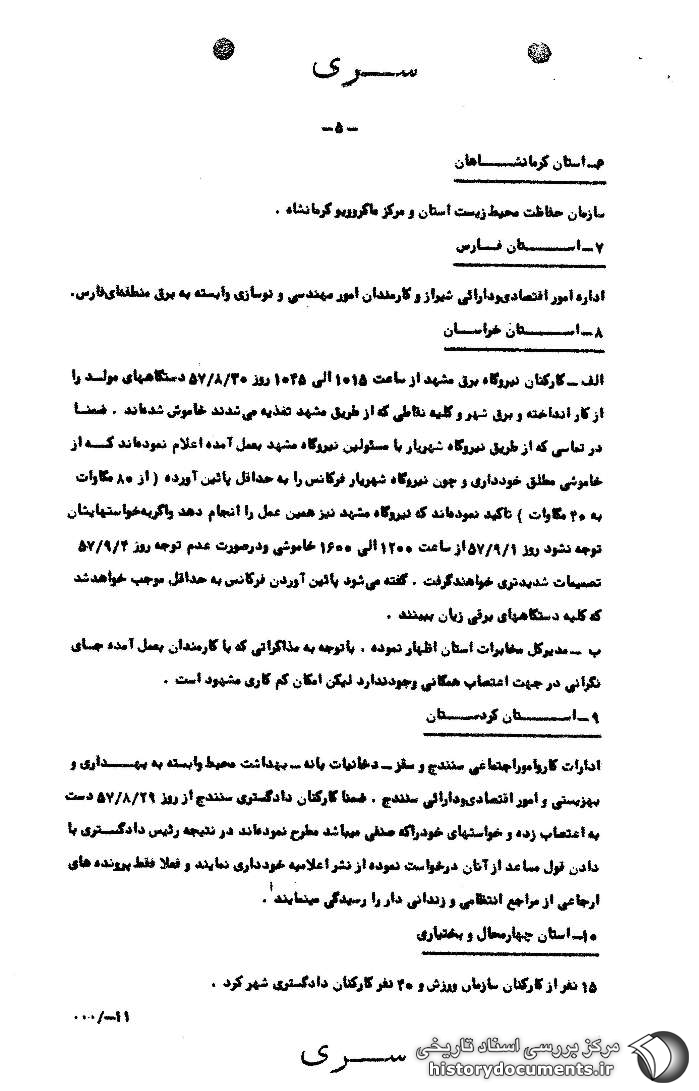 سری
-۵-
۶- استان کرمانشاهان
سازمان حفاظت محیط زیست استان و مرکز ماکروویو کرمانشاه .
۷- استان فارس
اداره امور اقتصادی‌ودارائی شیراز و کارمندان امور مهندسی و نوسازی وابسته به برق منطقه‌ای‌فارس.
۸- استان خراسان
الف - کارکنان نیروگاه برق مشهد از ساعت ۱۰۱۵ الی ۱۰۴۵ روز ۵۷/۸/۳۰ دستگاههای مولد را
از کار انداخته و برق شهر و کلیه نقاطی که از طریق مشهد تغذیه می‌شدند خاموش شده‌اند . ضمنا
در تماسی که از طریق نیروگاه شهریار با مسئولین نیروگاه مشهد بعمل آمده اعلام نموده‌اند که از
خاموشی مطلق خودداری و چون نیروگاه شهریار فرکانس را به حداقل پائین آورده ( از ۸۰ مگاوات
به ۲۰ مگاوات ) تاکید نموده‌اند که نیروگاه مشهد نیز همین عمل را انجام دهد واگربه‌خواستهایشان
توجه نشود روز ۵۷/۹/۱ از ساعت ۱۲۰۰ الی ۱۶۰۰ خاموشی ودرصورت عدم توجه روز ۵۷/۹/۴
تصمیمات شدیدتری خواهندگرفت . گفته می‌شود پائین آوردن فرکانس به حداقل موجب خواهدشد
که کلیه دستگاههای برقی زیان ببینند .
ب - مدیرکل مخابرات استان اظهار نموده . باتوجه به مذاکراتی که با کارمندان بعمل آمده جای
نگرانی در جهت اعتصاب همگانی وجودندارد لیکن امکان کم کاری مشهود است .
۹- استان کردستان
ادارات کاروامور‌اجتماعی سنندج و سقز - دخانیات بانه - بهداشت محیط وابسته به بهداری و
بهزیستی و امور اقتصادی‌ودارائی سنندج . ضمنا کارکنان دادگستری سنندج از روز ۵۷/۸/۲۹ دست
به اعتصاب زده و خواستهای خودراکه صنفی میباشد مطرح نموده‌اند در نتیجه رئیس دادگستری با
دادن قول مساعد از آنان درخواست نموده از نشر اعلامیه خودداری نمایند و فعلا فقط پرونده های
ارجاعی از مراجع انتظامی و زندانی دار را رسیدگی مینمایند .
۱۰- استان چهارمحال و بختیاری
۱۵ نفر از کارکنان سازمان ورزش و ۴۰ نفر کارکنان دادگستری شهر کرد .
۱۱-/۰۰۰
سری
مرکز بررسی اسناد تاریخی
historydocuments.ir